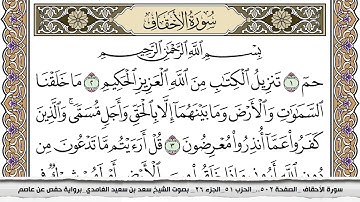 سُورَةُ الأَحْقَافِ
بِسْمِ اللَّهِ الرَّحْمَٰنِ الرَّحِيمِ
حمٓ ١ تَنزِيلُ الْكِتَٰبِ مِنَ اللَّهِ الْعَزِيزِ الْحَكِيمِ ٢ مَا خَلَقْنَا
السَّمَٰوَٰتِ وَالْأَرْضَ وَمَا بَيْنَهُمَا إِلَّا بِالْحَقِّ وَأَجَلٍ مُّسَمًّى وَالَّذِينَ
كَفَرُوا۟ عَمَّا أُنذِرُوا۟ مُعْرِضُونَ ٣ قُلْ أَرَءَيْتُم مَّا تَدْعُونَ مِن
دُونِ اللَّهِ أَرُونِى مَاذَا خَلَقُوا۟ مِنَ الْأَرْضِ أَمْ لَهُمْ شِرْكٌ فِى
سورة الأحقاف _الصفحة ٥٠٢_ الحزب ٥١_الجزء ٢٦_ بصوت الشيخ سعد بن سعيد الغامدي _برواية حفص عن عاصم